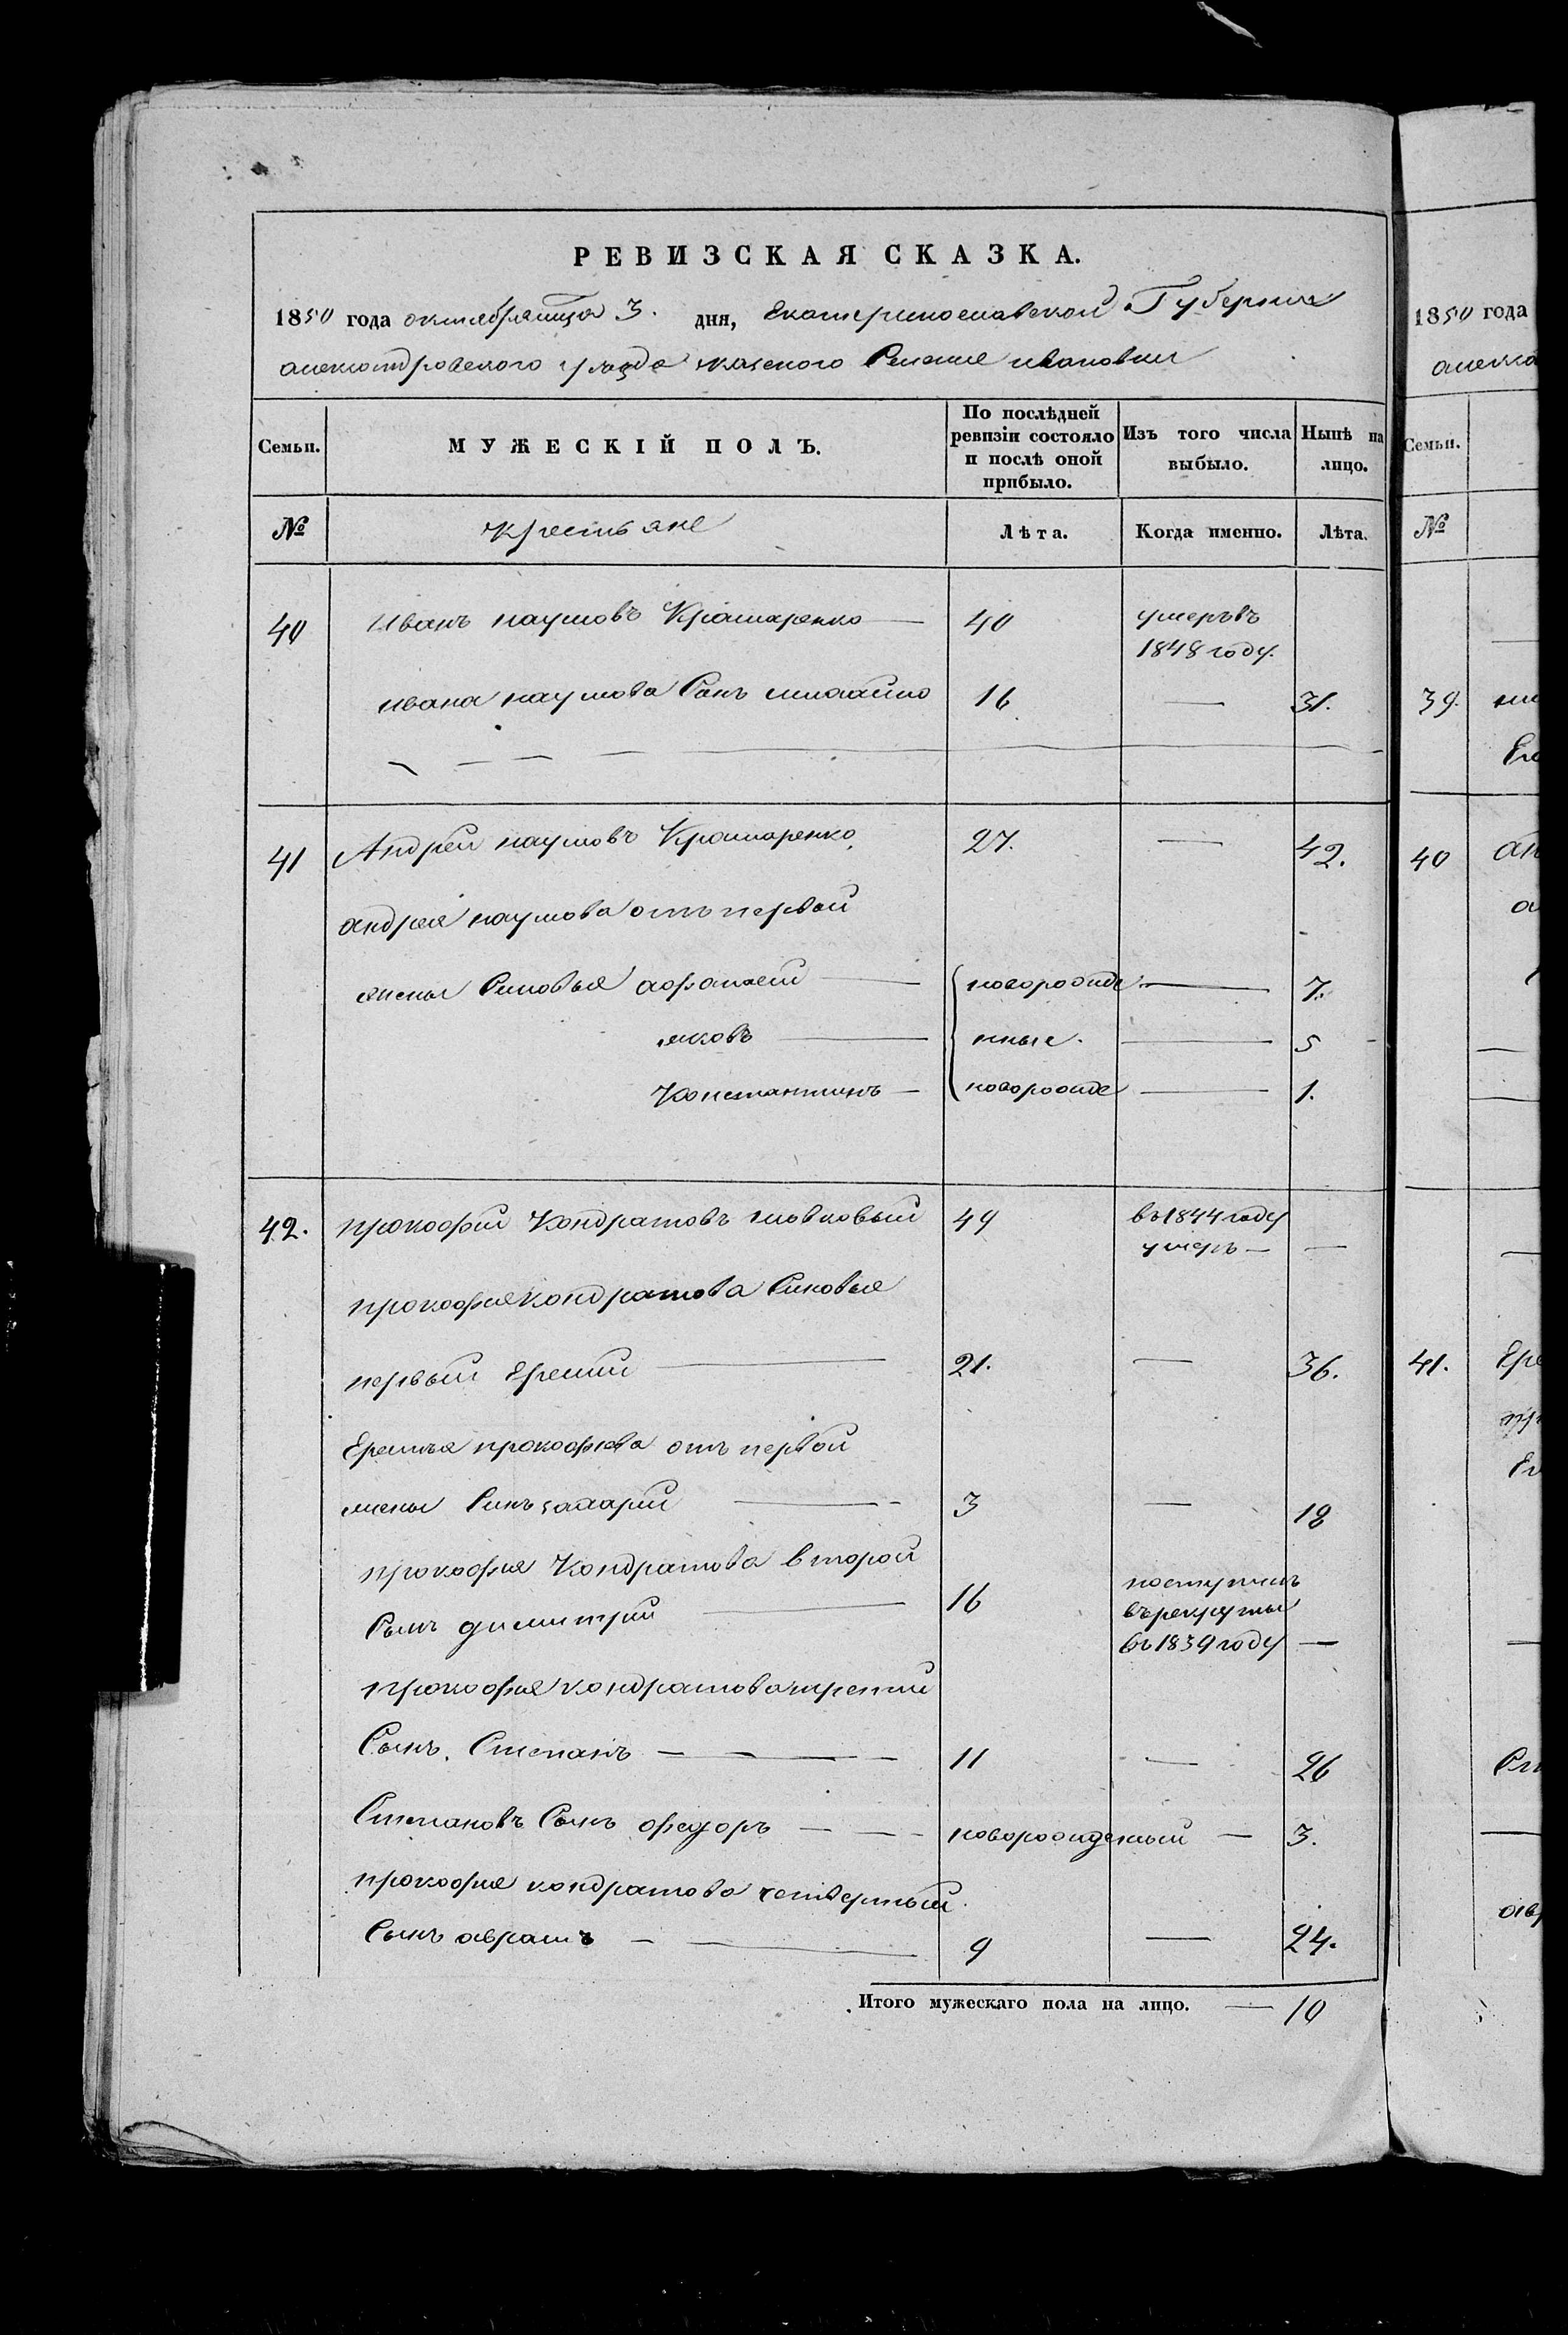 РЕВИЗСКАЯ СКАЗКА.
1850 года октября мца 3. дня, Екатеринославской Губернии
александровского уезда казеного Селения ивановки
Семьи. МУЖЕСКІЙ ПОЛЪ. По послѣдней ревизіи состояло и послѣ оной прибыло. Изъ того числа выбыло. Нынѣ на лицо.
№ крестьяне Лѣта. Когда именно. Лѣта.
40 Иванъ наумовъ Крамаренко 40 умеръ въ
1848 году.
ивана наумова Сынъ 16 — 31.
41 Андрей наумовъ Крамаренко 27. — 42.
андрея наумова отъ первой
жены Сыновья афанасей новорожде — 7.
яковъ нные. — 5
Константинъ — новорожде — 1.
42. прокофий Кондратовъ 49 въ 1844 году
умеръ — —
прокофия кондратова Сыновья
первый Еремий 21. — 36.
Еремия прокофиева отъ первой
жены Сынъ захарий 3 — 18
прокофия Кондратова второй
Сынъ димитрий 16 поступилъ
въ рекруты
въ 1839 году —
прокофия кондратова третий
Сынъ. Степанъ — 11 — 26
Степановъ Сынъ федоръ — новорожденый — 3.
прокофия кондратова четвертый
Сынъ аврамъ — 9 — 24.
Итого мужескаго пола на лицо. — 10
1850 года
алекса
Семьи.
№
39.
40 ан
41. Ере